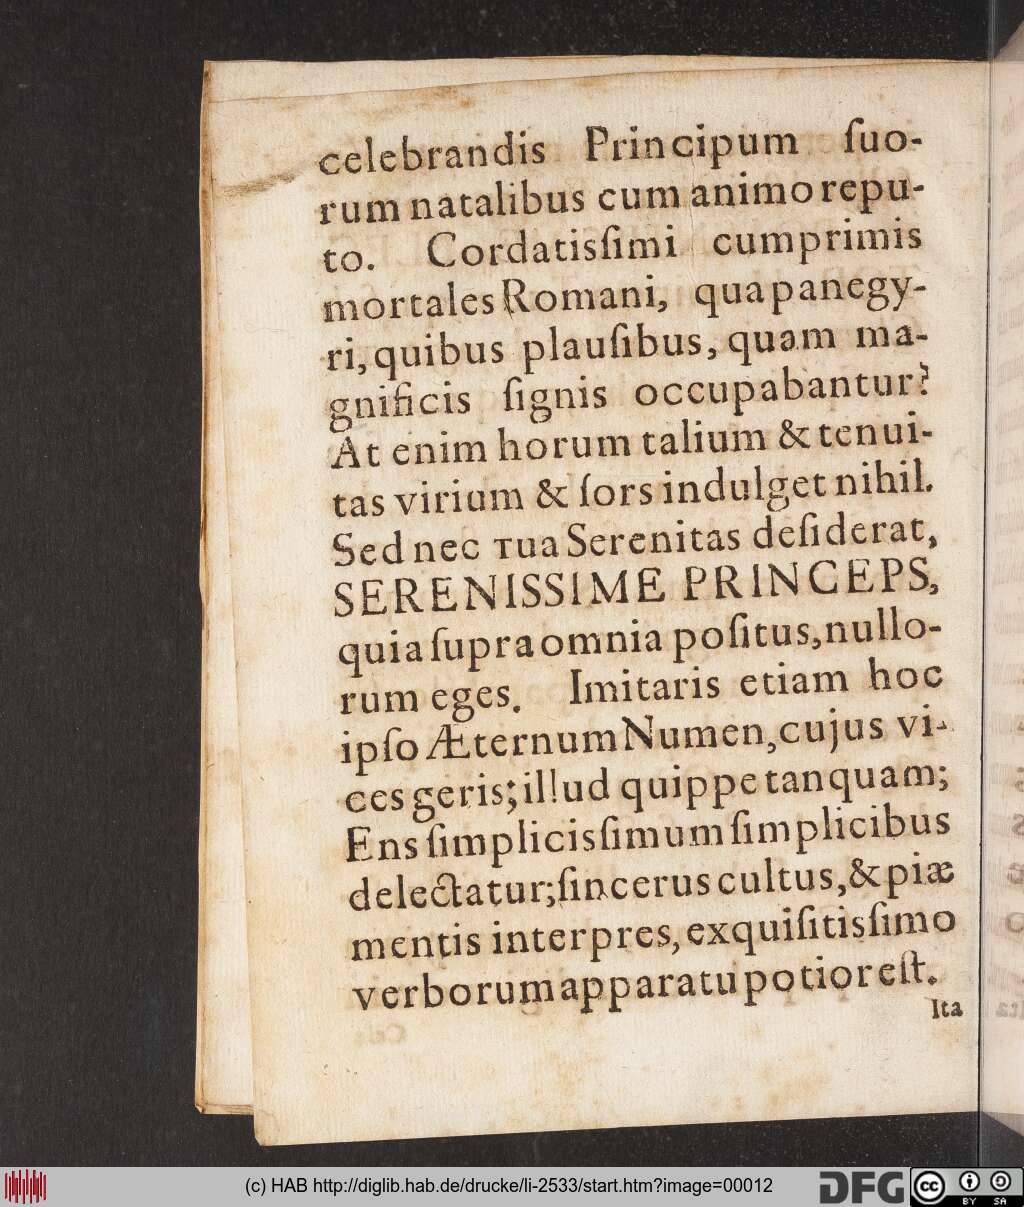 celebrandis Principum ſuo-
rum natalibus cum animo repu-
to. Cordatisſimi cumprimis
mortales Romani, qua panegy-
ri, quibus plauſibus, quam ma-
gnificis ſignis occupabantur?
At enim horum talium & tenui-
tas virium & ſors indulget nihil.
Sed nec Tua Serenitas deſiderat,
SERENISSIME PRINCEPS,
quia ſupra omnia poſitus, nullo-
rum eges. Imitaris etiam hoc
ipſo Æternum Numen, cujus vi-
ces geris; illud quippe tanquam;
Ens ſimplicisſimum ſimplicibus
delectatur; ſincerus cultus, & piæ
mentis interpres, exquiſitisſimo
verborum apparatu potior eſt.
Ita
(c) HAB http://diglib.hab.de/drucke/li-2533/start.htm?image=00012
DFG
cc BY SA